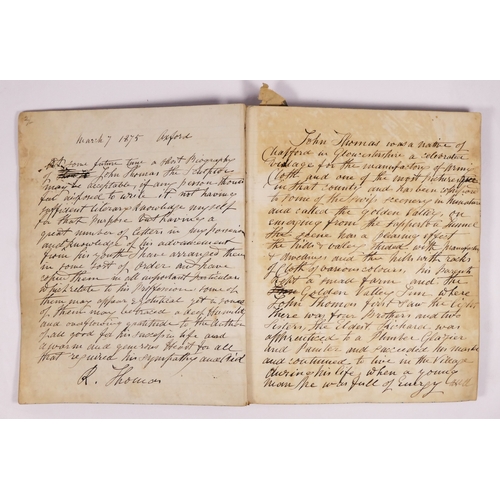 March 7 1875 Oxford
At some future time a short Biography
of John Thomas the Sculptor
may be acceptable, if any person should
feel disposed to write it not having
sufficient literary knowledge myself
for that purpose But having a
great number of letters in my possession
and knowledge of his advancement
from his youth I have arranged them
in some sort of order and have
copied them in all important particulars
which relate to his Profession some of
them may appear egotistical yet in some
of them may be traced a deep
and gratitude to the Author
of all good for his success in life and
a warm and generous heart for all
that required his sympathy and aid
R. Thomas
John Thomas was a native of
Chalford in Gloucestershire a celebrated
village for the manufactory of Army
Cloth and one of the most picturesque
in that county and has been compared
to some of the Swiss scenery in miniature
and called the golden valley, on
emerging from the Sapperton tunnel
the scene has a pleasing effect
the hills & valley studed with
& dwellings and the hills with racks
of Cloth of various colours, his parents
kept a small farm and the
Golden Valley Inn where
John Thomas first saw the light
there was four Brothers and two
Sisters, the eldest Richard was
apprenticed to a Plumber Glazier
and Painter and succeeded his master
and continued to live in the village
during his life, when a young
man he was full of energy and